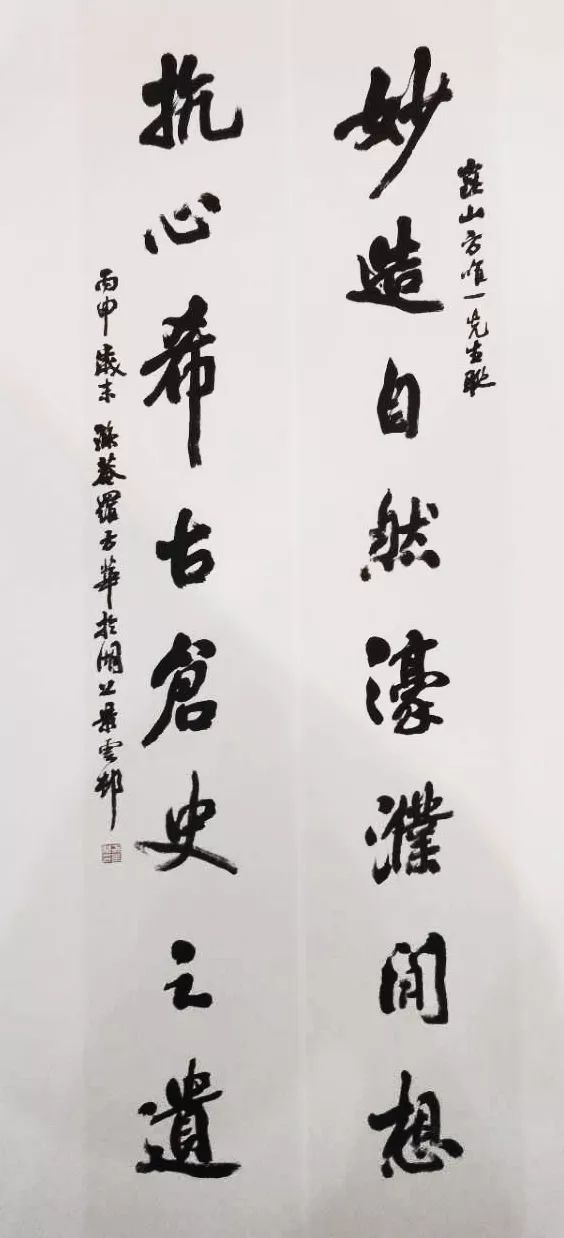 崑山方唯一先生聯
妙造自然濠濮間想
抗心希古倉史之遺
丙申歲末 華於湖上景雲邨